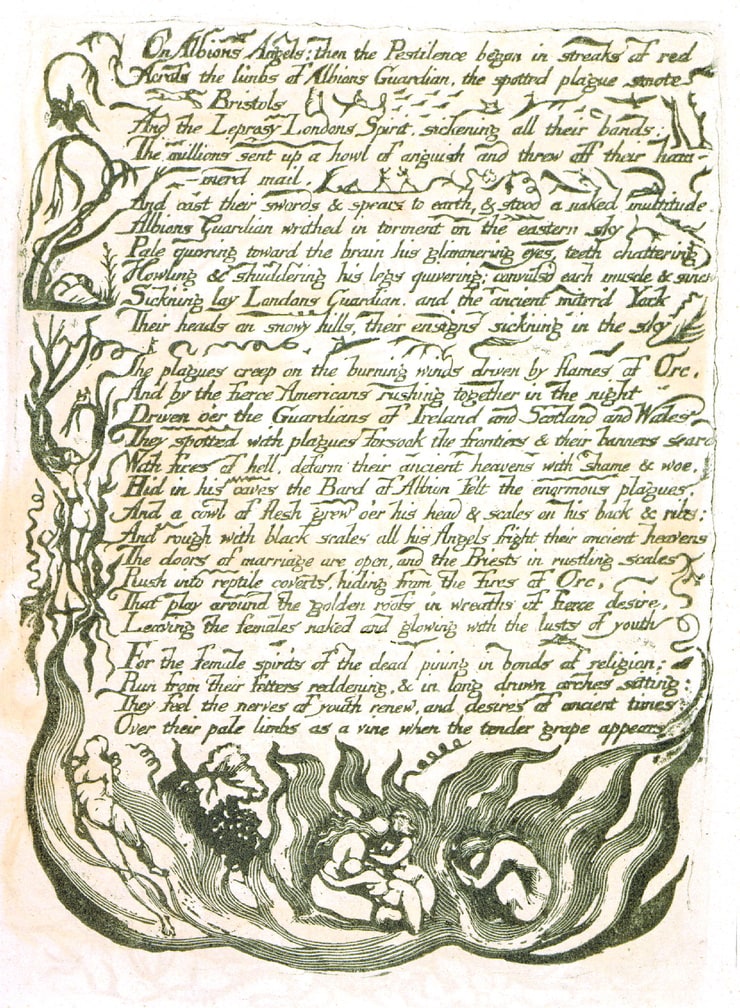 On Albions Angels; then the Pestilence began in streaks of red
Across the limbs of Albions Guardian, the spotted plague smote
Bristols
And the Leprosy Londons Spirit, sickening all their bands:
The millions sent up a howl of anguish and threw off their ham-
-merd mail,
And cast their swords & spears to earth, & stood a naked multitude.
Albions Guardian writhed in torment on the eastern sky
Pale quivring toward the brain his glimmering eyes, teeth chattering
Howling & shuddering his legs quivering; convuls'd each muscle & sinew
Sickning lay Londons Guardian, and the ancient miter'd York
Their heads on snowy hills, their ensigns sickning in the sky
The plagues creep on the burning winds driven by flames of Orc,
And by the fierce Americans rushing together in the night
Driven o'er the Guardians of Ireland and Scotland and Wales
They spotted with plagues forsook the frontiers & their banners seard
With fires of hell, deform their ancient heavens with shame & woe.
Hid in his caves the Bard of Albion felt the enormous plagues,
And a cowl of flesh grew o'er his head & scales on his back & ribs;
And rough with black scales all his Angels fright their ancient heavens
The doors of marriage are open, and the Priests in rustling scales
Rush into reptile coverts, hiding from the fires of Orc,
That play around the golden roofs in wreaths of fierce desire,
Leaving the females naked and glowing with the lusts of youth
For the female spirits of the dead pining in bonds of religion;
Run from their fetters reddening, & in long drawn arches sitting:
They feel the nerves of youth renew, and desires of ancient times,
Over their pale limbs as a vine when the tender grape appears